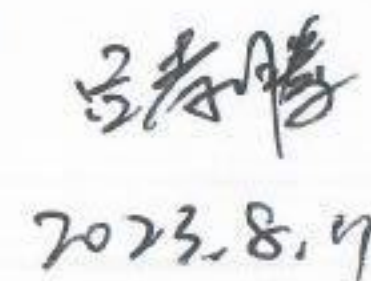 吕孝腾
2023.8.17